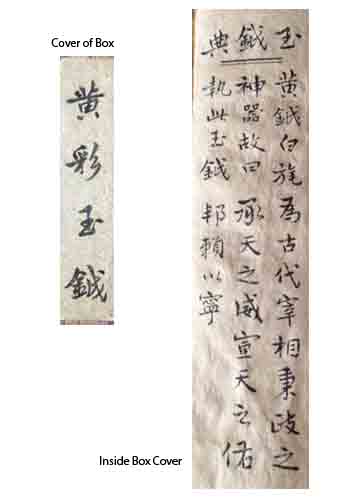 Cover of Box
黄彩玉鉞
玉鉞典
黄鉞白旄為古代宰相秉政之
神器故曰 承天之威宣天之佑
執此玉鉞 邦賴以寧
Inside Box Cover